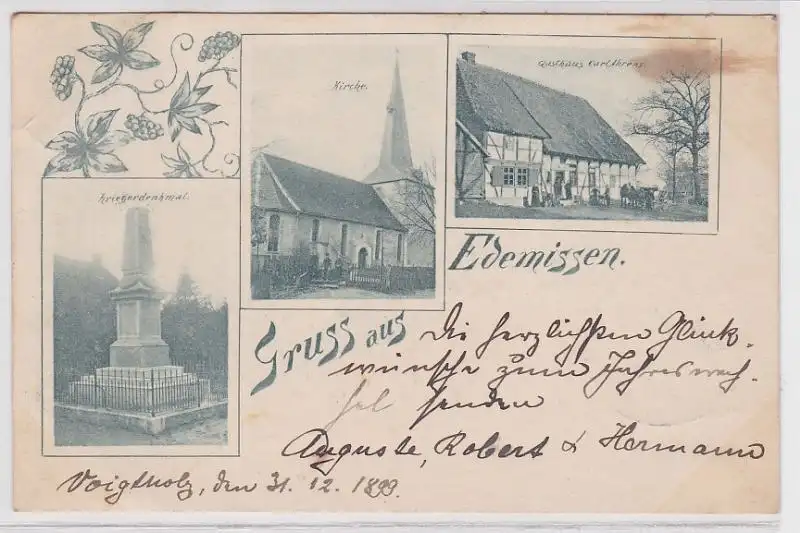 Kirche.
Gasthaus Carl Ahrens.
Kriegerdenkmal.
Gruss aus
Edemissen.
Die herzlichsten Glück-
wünsche zum Jahreswech-
sel senden
Auguste, Robert & Hermann
Voigtholz, den 31. 12. 1899.